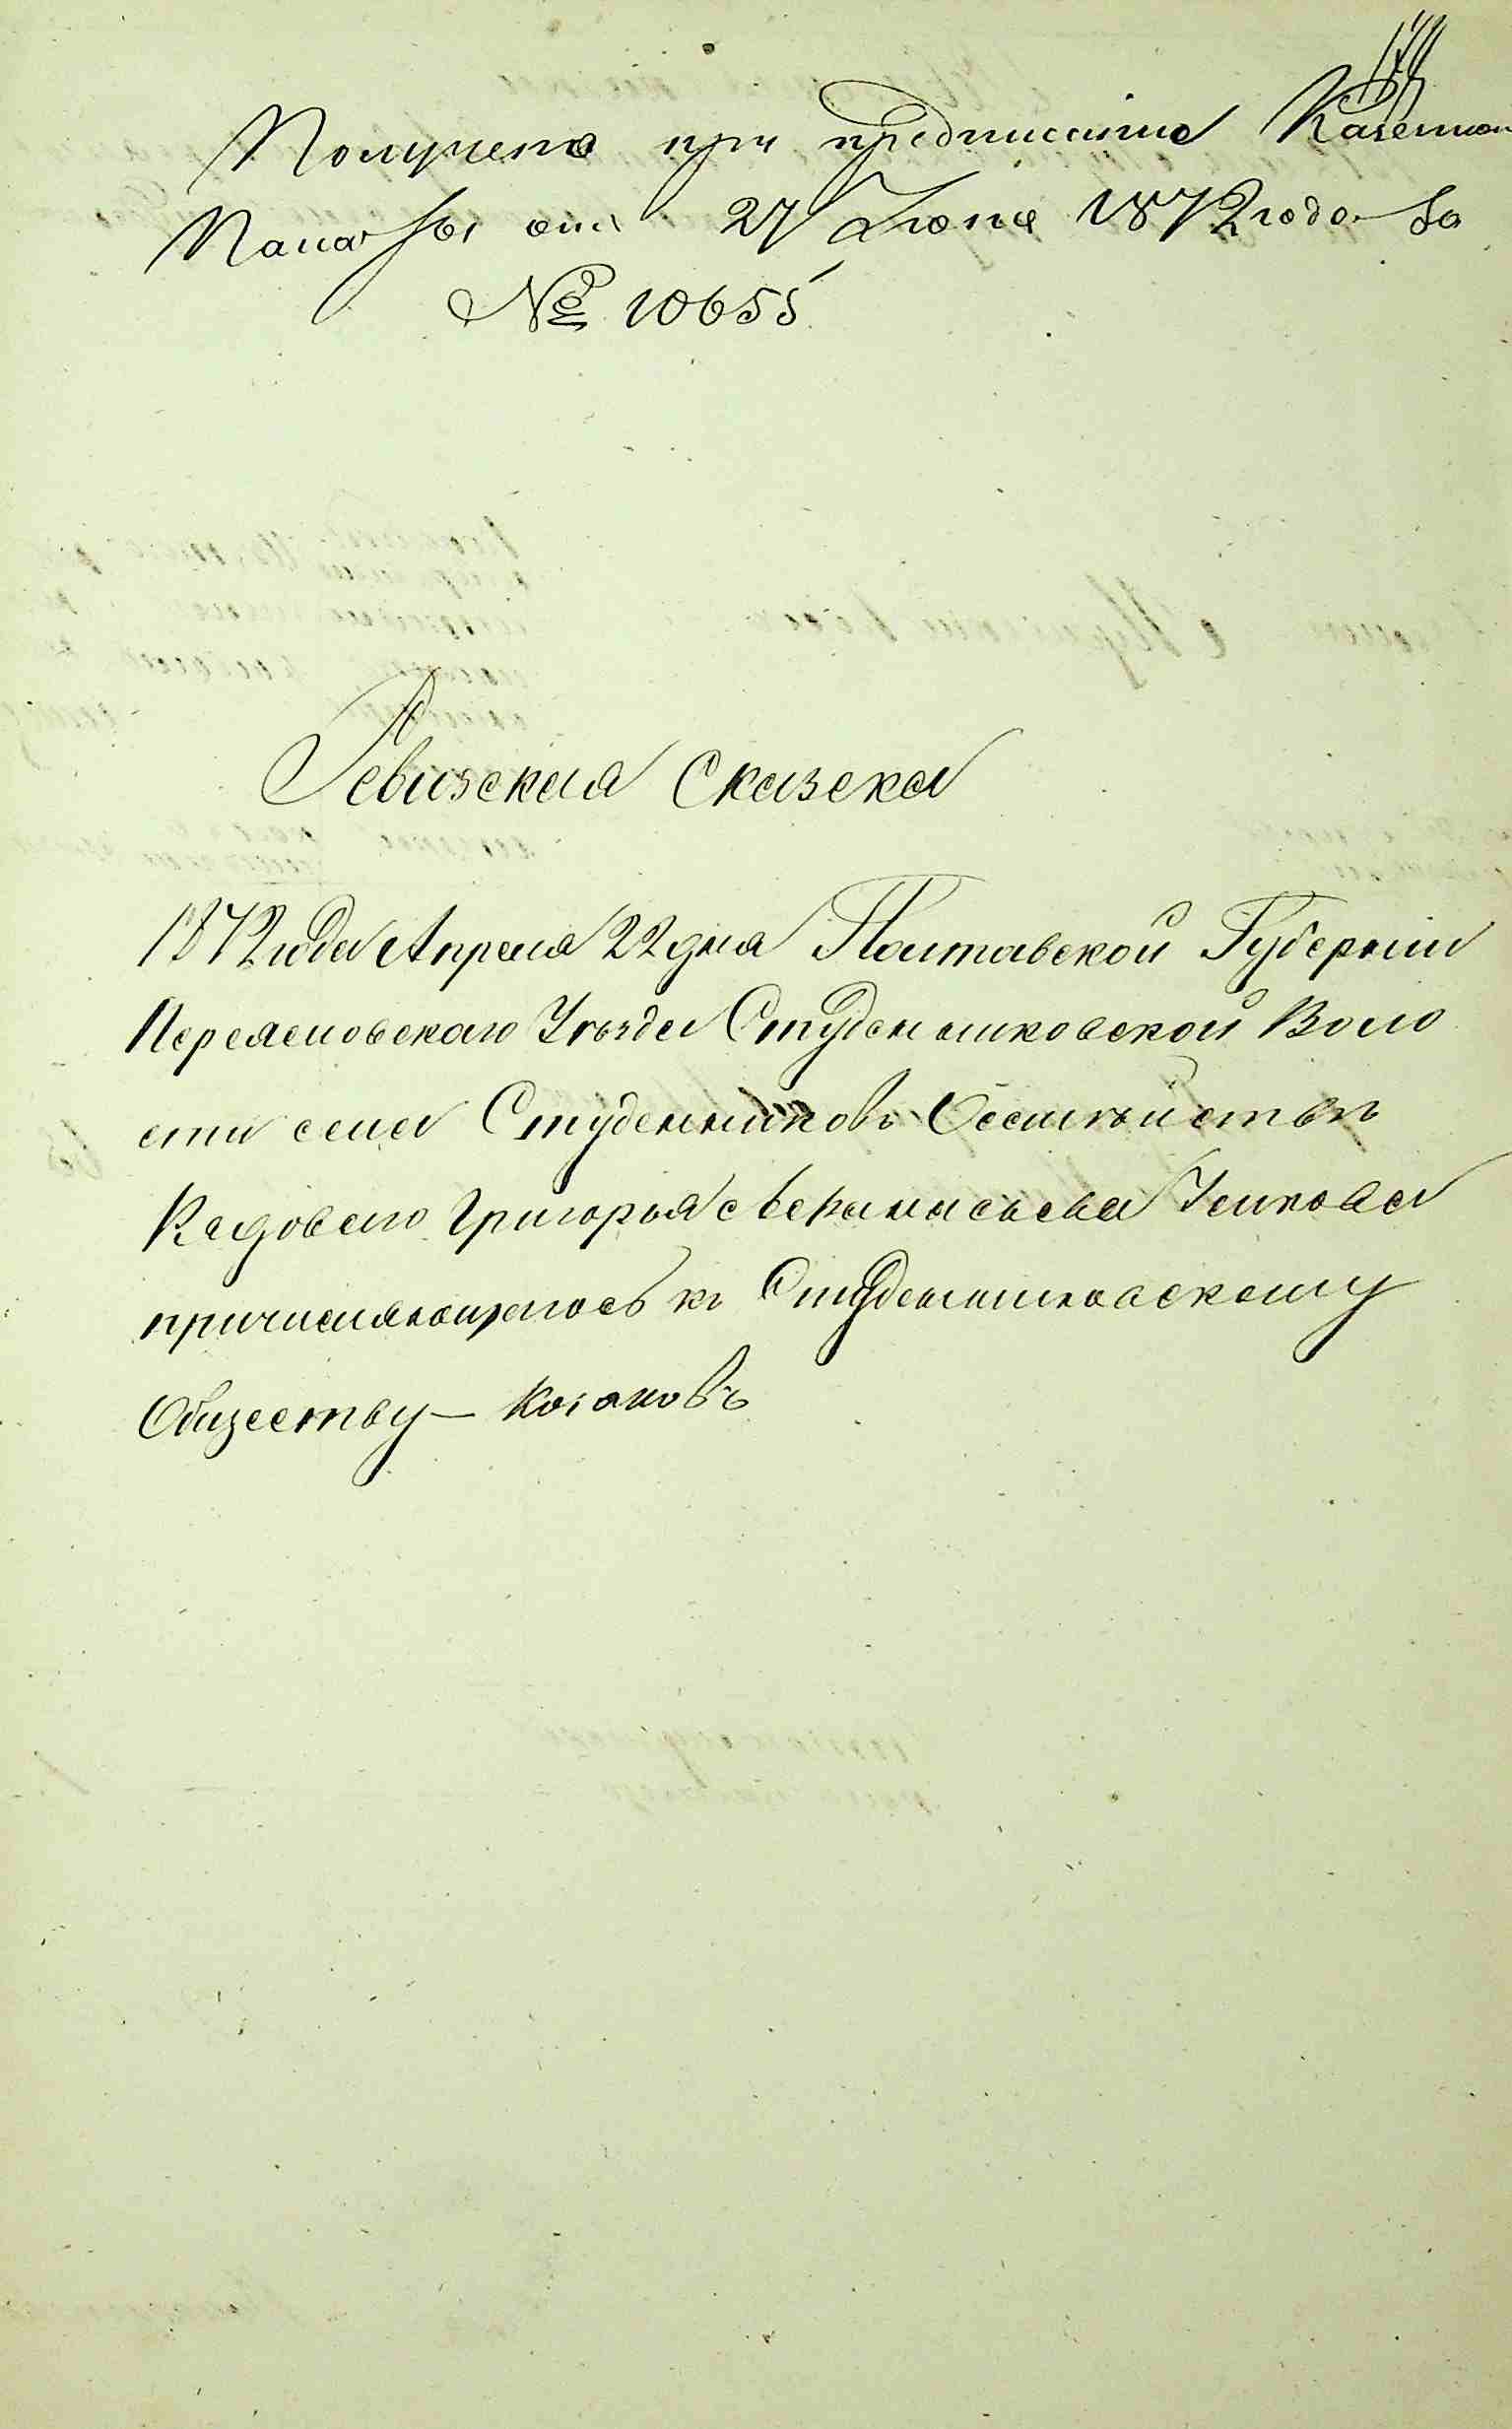 Получена при предписаніи Казенной
Палаты отъ 27 Іюня 1872 года за
№ 10655
Ревизская Сказка
1872 года Апреля 22 дня Полтавской Губерніи
Переяславскаго Уѣзда Студениковской Воло
сти села Студениковъ
Рядоваго Григорья
причисляющагось къ Студениковскому
Обществу — Козаковъ